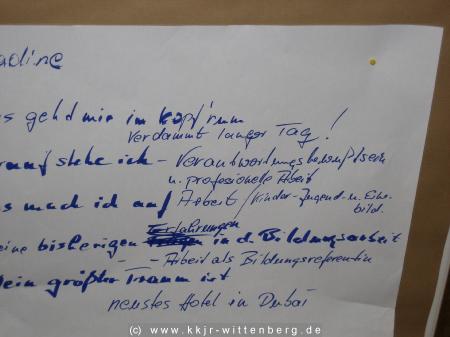 adine
s gehd mir im Kopf rum
Verdammt langer Tag!
rauf stehe ich - Verantwordungsbewußtsein
u. profesionelle Arbeit
s mach ich auf Arbeit / Kinder-Jugend-u. Erw.
bild.
Erfahrungen
eine bisherigen in d. Bildungsarbeit
- - Arbeit als Bildungsreferentin
ein größter Traum ist
neustes Hotel in Dubai
(c) www.kkjr-wittenberg.de